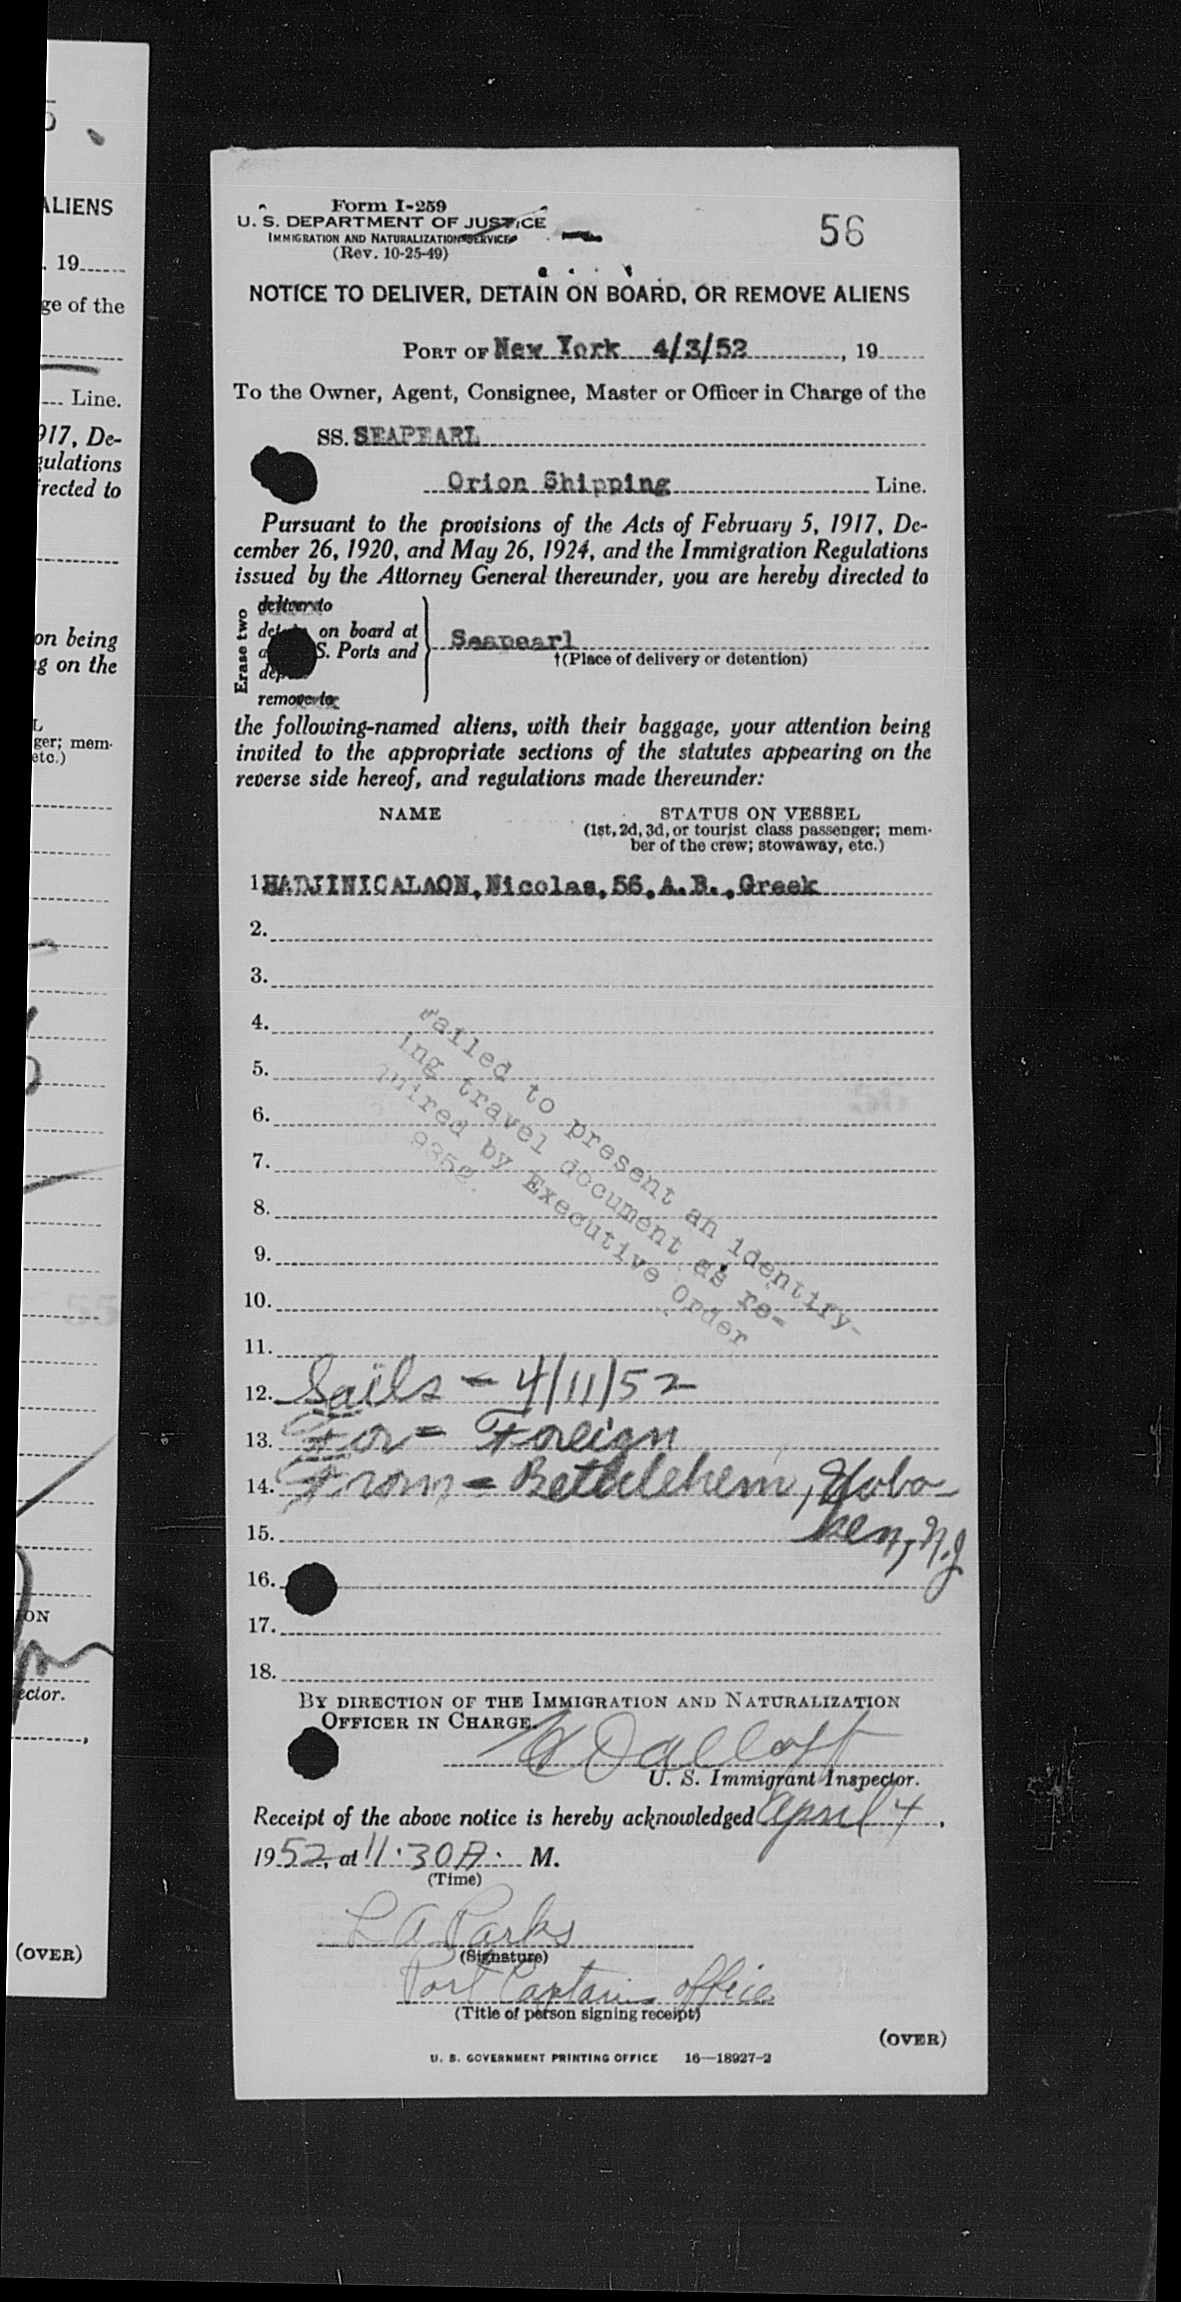 ALIENS
19
ge of the
Line.
917, De-
gulations
rected to
on being
g on the
ger; mem-
etc.)
ON
ector.
(OVER)
Form I-259
U. S. DEPARTMENT OF JUSTICE
IMMIGRATION AND NATURALIZATION SERVICE
(Rev. 10-25-49)
56
NOTICE TO DELIVER, DETAIN ON BOARD, OR REMOVE ALIENS
PORT OF New York 4/3/52, 19
To the Owner, Agent, Consignee, Master or Officer in Charge of the
SS. SEAPEARL
Orion Shipping Line.
Pursuant to the provisions of the Acts of February 5, 1917, De-
cember 26, 1920, and May 26, 1924, and the Immigration Regulations
issued by the Attorney General thereunder, you are hereby directed to
Erase two
deliver to
on board at
S. Ports and
remove to
Seapearl
†(Place of delivery or detention)
the following-named aliens, with their baggage, your attention being
invited to the appropriate sections of the statutes appearing on the
reverse side hereof, and regulations made thereunder:
NAME STATUS ON VESSEL
(1st, 2d, 3d, or tourist class passenger; mem-
ber of the crew; stowaway, etc.)
1 HADJINICALAON, Nicolas, 56, A.B., Greek
2.
3.
4.
5.
6.
7.
8.
9.
10.
11.
Failed to present an identify-
ing travel document as re-
quired by Executive Order
9352.
12. Sails - 4/11/52
13. For = Foreign
14. From = Bethlehem, Hobo-
15. ken, N.J
16.
17.
18.
BY DIRECTION OF THE IMMIGRATION AND NATURALIZATION
OFFICER IN CHARGE.
U. S. Immigrant Inspector.
Receipt of the above notice is hereby acknowledged April 4,
1952, at 11:30 A. M.
(Time)
L A Parks
(Signature)
Port Captains office
(Title of person signing receipt)
(OVER)
U. S. GOVERNMENT PRINTING OFFICE 16—18927-2